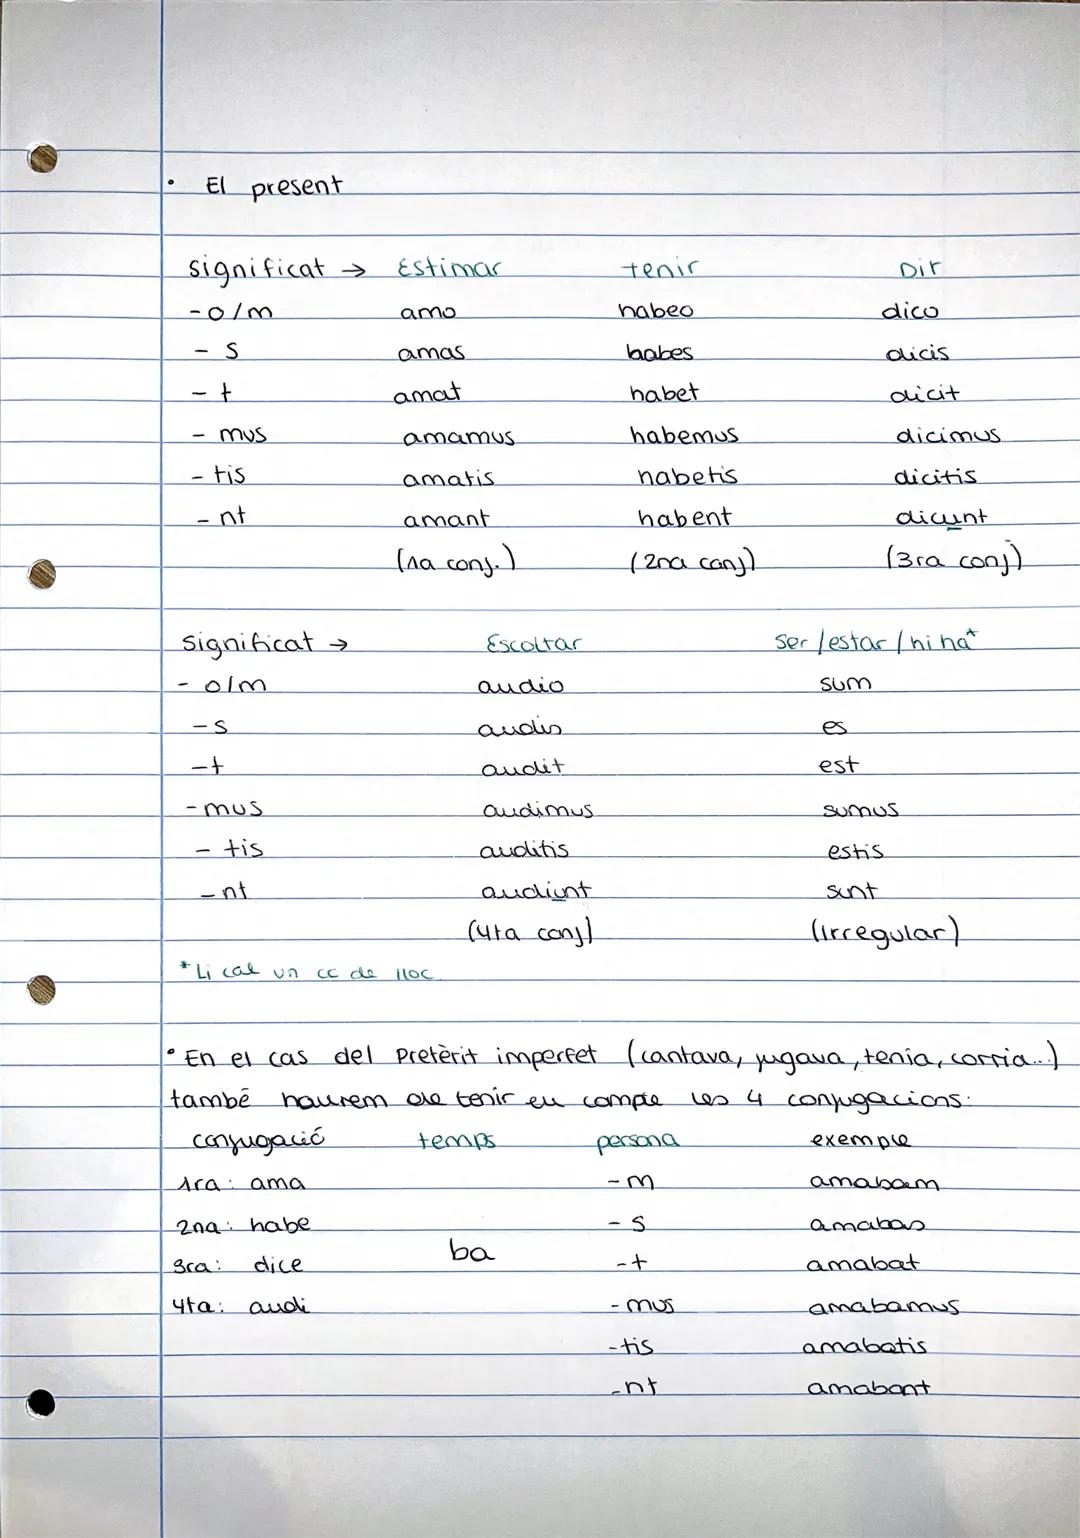 • El present
significat → Estimar tenir Dir
-o/m amo habeo dico
- s amas habes dicis
- t amat habet dicit
- mus amamus habemus dicimus
- tis amatis habetis dicitis
- nt amant habent dicunt
(1a conj.) (2na conj) (3ra conj)
significat → Escoltar ser/estar/hi ha*
- o/m audio sum
-s audis es
-t audit est
-mus audimus sumus
- tis auditis estis
-nt audiunt sunt
(4ta conj) (irregular)
*Li cal un cc de lloc
• En el cas del Pretèrit imperfet (cantava, jugava, tenia, corria...)
també haurem de tenir en compte les 4 conjugacions:
conjugació temps persona exemple
1ra: ama -m amabam
2na: habe - s amabas
3ra: dice ba -t amabat
4ta: audi - mus amabamus
-tis amabatis
-nt amabant